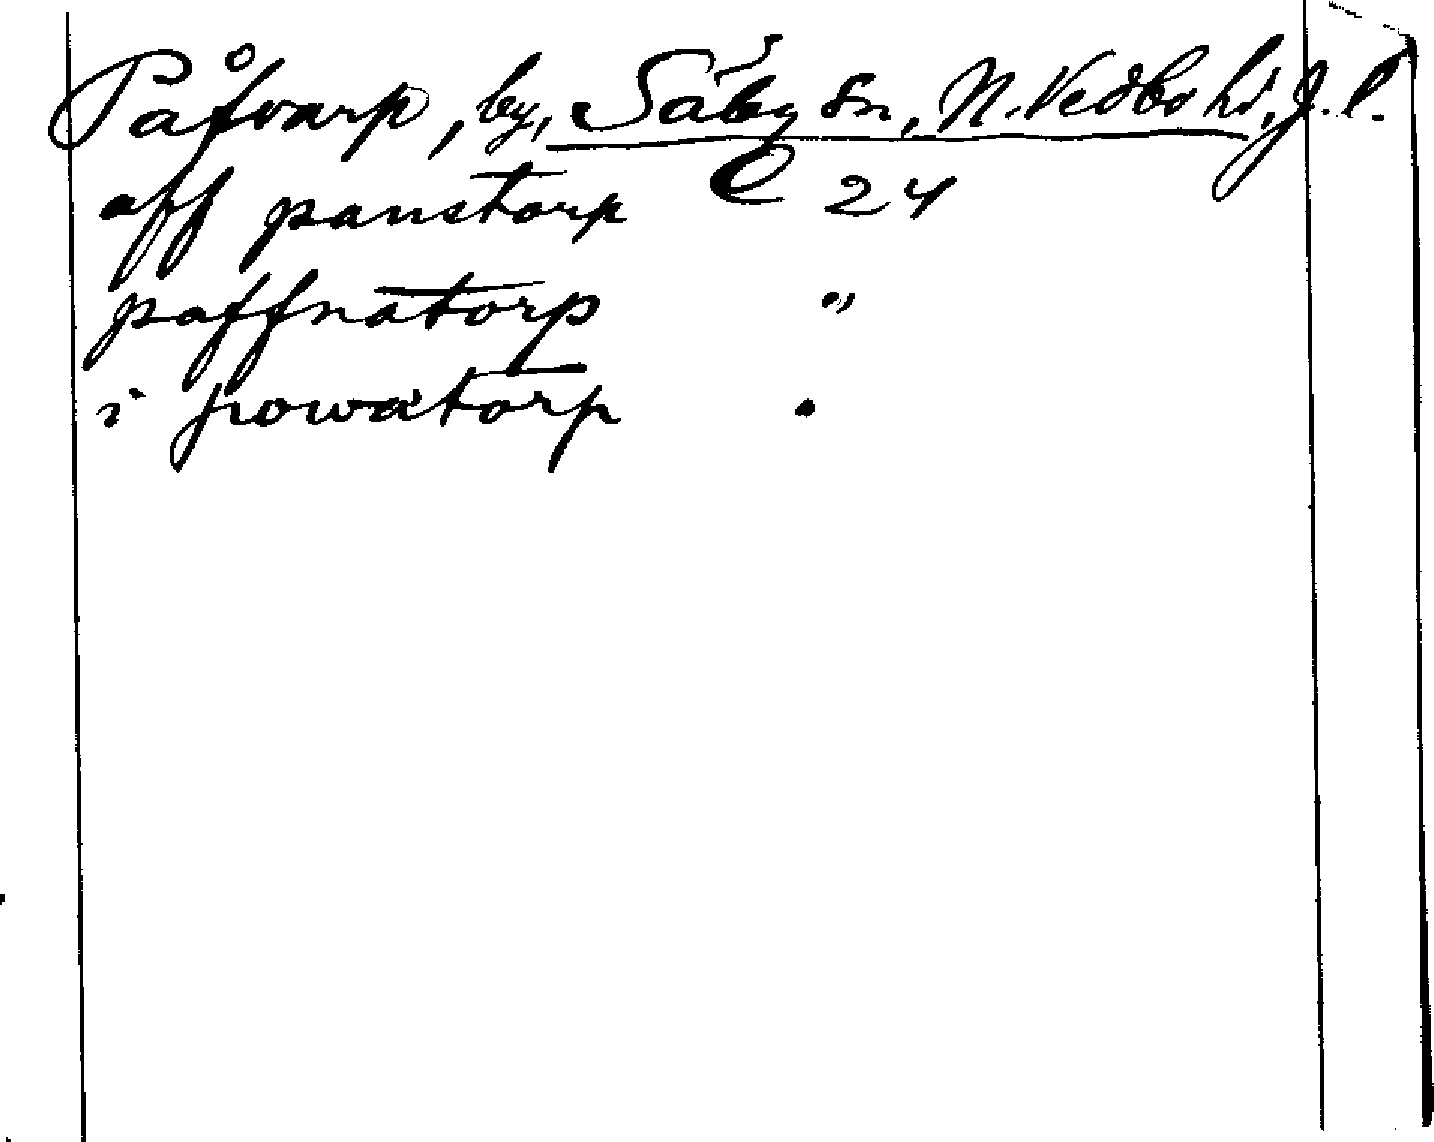 Påfvarp, by, Säby sn, N. Vedbo hd, J. l.
aff panstorp C 24
paffnatorp "
i powatorp "